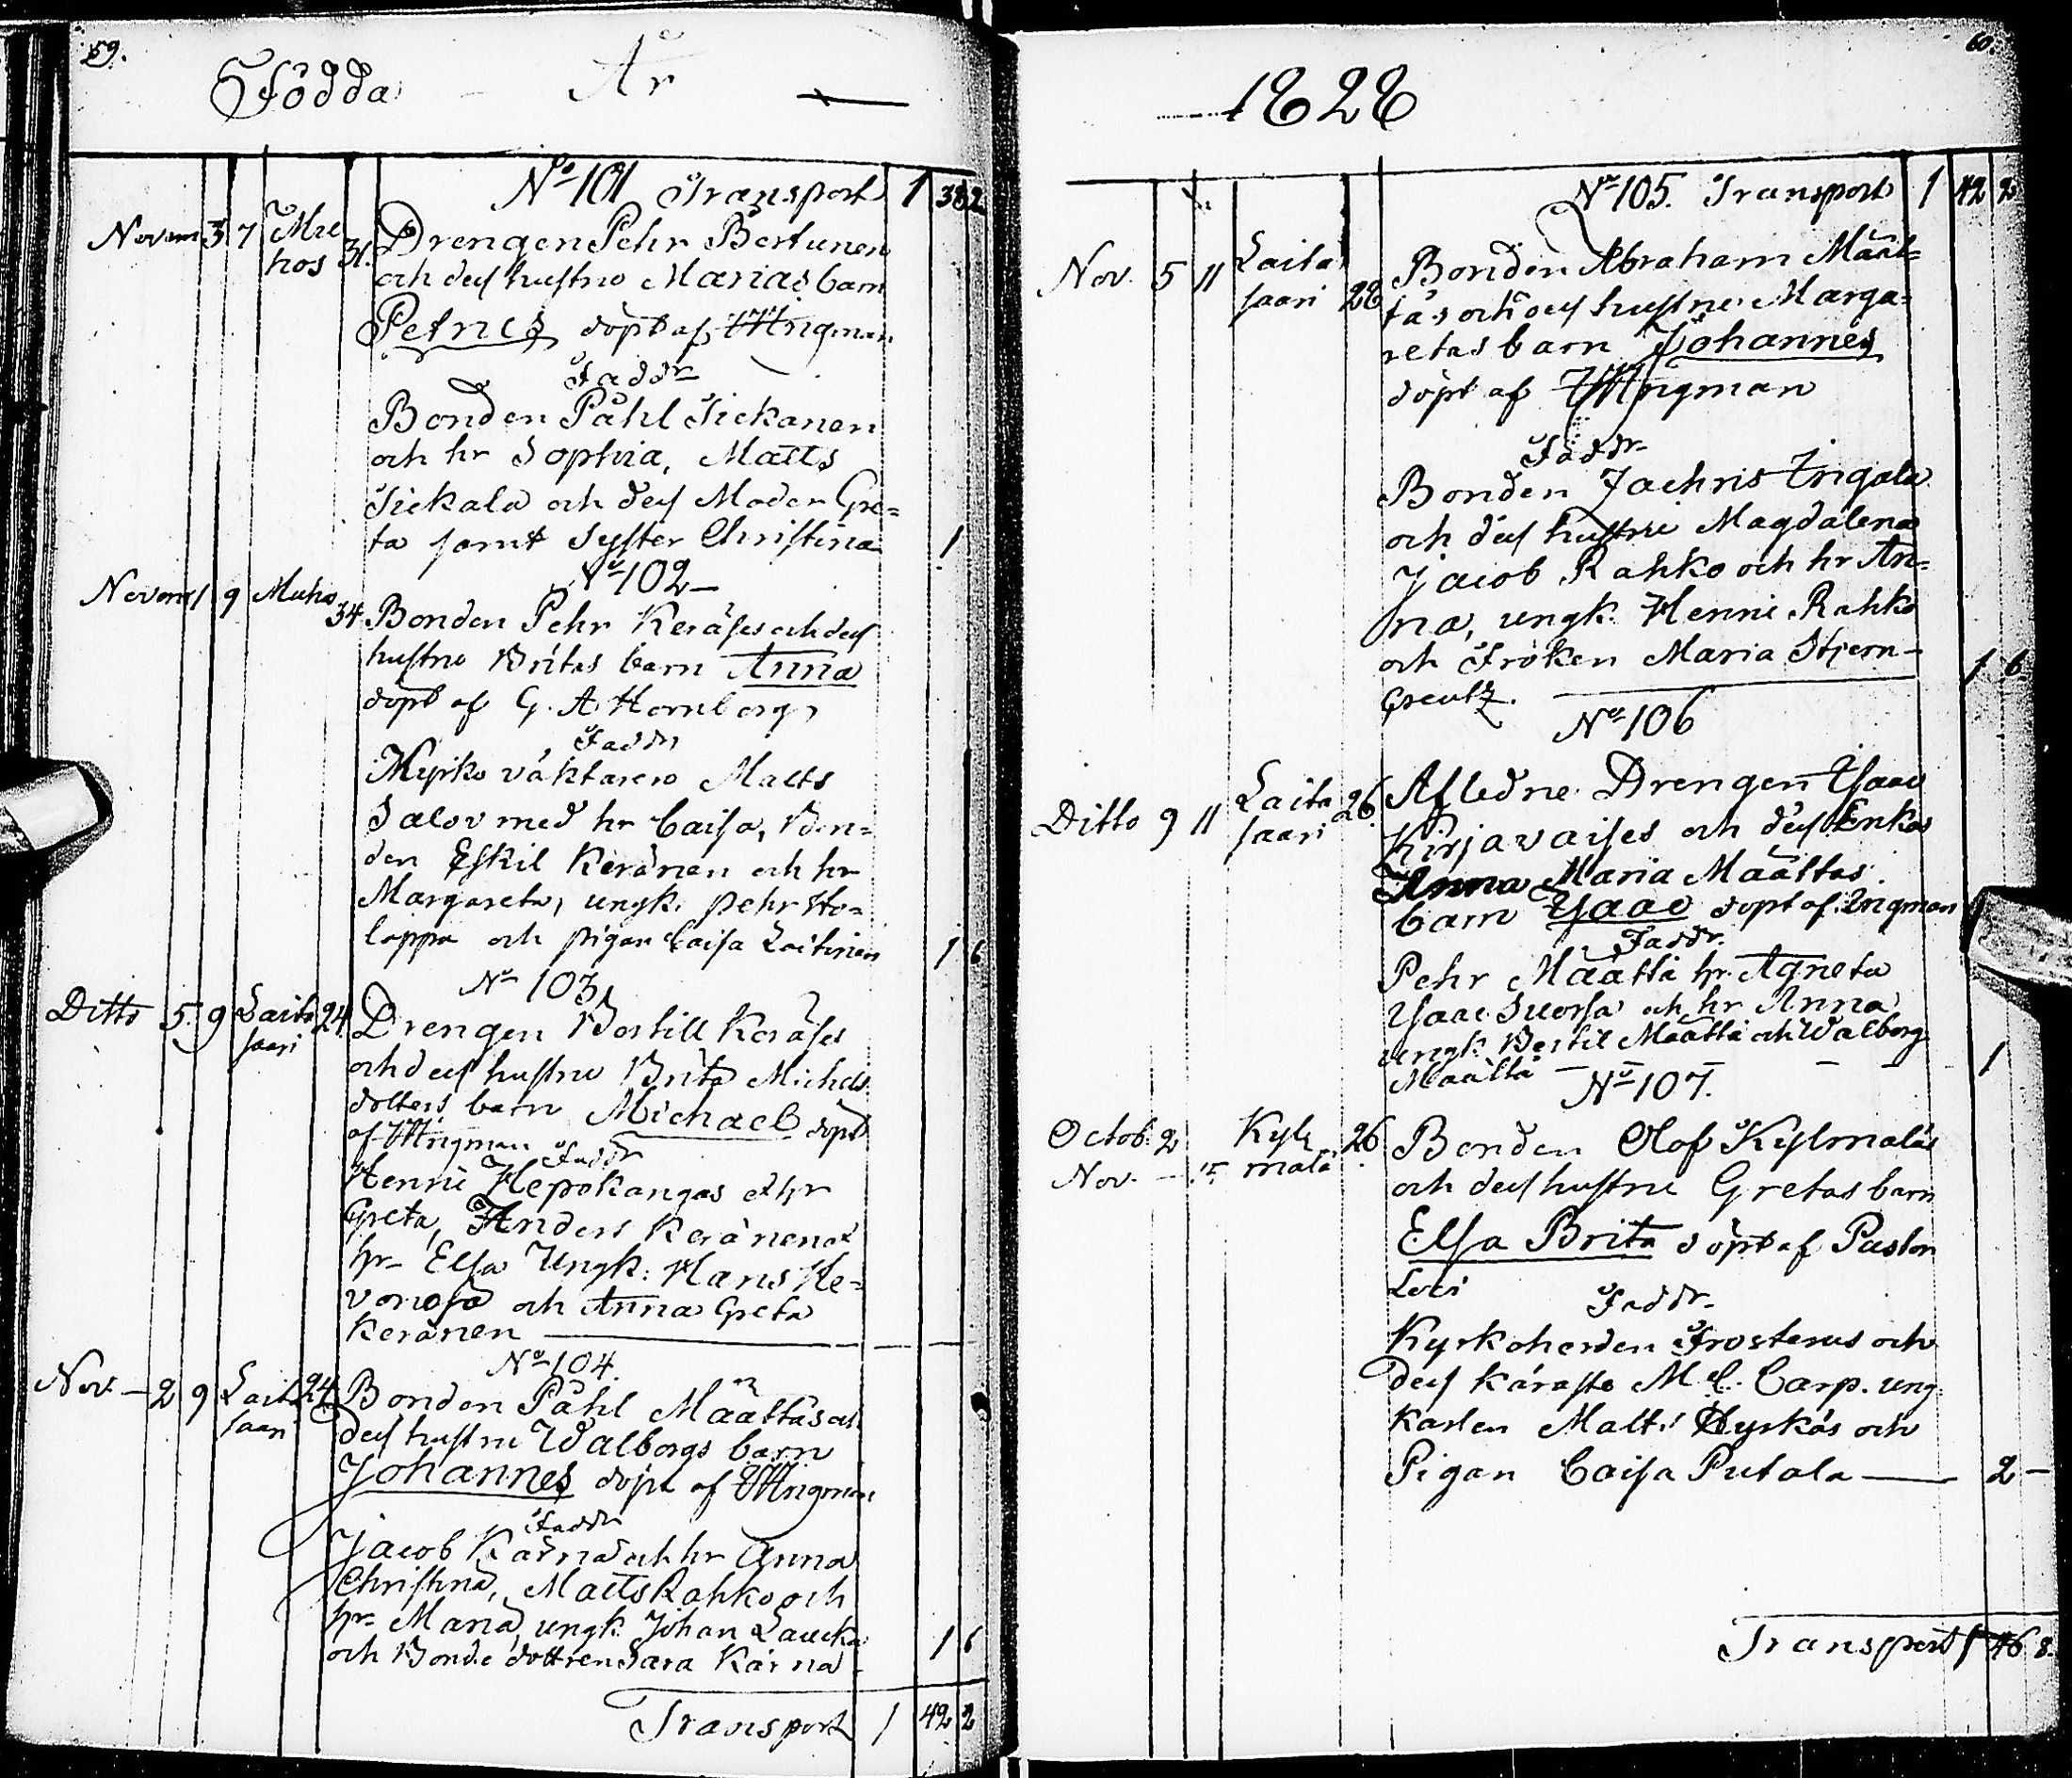 59.
Födda År
Nº 101 Transport 1 38 2
Novem 3 7 Mu
hos 31. Drengen Pehr Bertunen
och dess hustru Marias barn
Petrus döpt af Ingman
Faddr
Bonden Påhl Sickanen
och hr Sophia, Matts
Sickala och dess Moder Gre=
ta samt Syster Christina 1
Nº 102
Novem 1 9 Muho 34 Bonden Pehr Keräses och dess
hustru Britas barn Anna
döpt af G. A. Hornborg
Faddr
Kyrko väktaren Matts
Salov med hr Caisa, Bon=
den Eskil Keränen och hr
Margareta, ungk. Pehr Ho=
loppa och pigan Caisa Laitinen 1 6
Nº 103
Ditto 5. 9 Laita 24 Drengen Bertill Keräses
saari
och dess hustru Brita Michels
dotters barn Michael döpt
af Ingman Faddr
Henric Hepokangas et hr
Greta, Anders Keränen et
hr Elsa Ungk: Hans He=
vonoja och Anna Greta
Keränen
Nº 104.
Nov. 2 9 Laita 24 Bonden Påhl Määttas och
saari
dess hustru Walborgs barn
Johannes döpt af Ingman
Faddr
Jacob Kärnä och hr Anna
Christina, Matts Rahko och
hr Maria, ungk. Johan Laucka
och Bonde dottren Sara Kärnä 1 6
Transport 1 42 2
60.
1828
Nº 105. Transport 1 42 2
Nov. 5 11 Laita
saari 28 Bonden Abraham Määt=
täs och dess hustru Marga=
retas barn Johannes
döpt af Ingman
Faddr
Bonden Zachris Ingala
och dess hustru Magdalena
Jacob Rahko och hr An=
na, ungk. Henric Rahko
och Fröken Maria Stjern-
Creutz. 1 6
Nº 106
Ditto 9 11 Laita 26. Afledne Drengen Isaac
saari
Kirjavaises och dess Enkas
Anna Maria Määttas
barn Isaac döpt af Ingman
Faddr.
Pehr Määttä hr. Agneta
Isaac Suorsa och hr Anna
ungk. Bertil Määttä och Walborg
Määttä 1
Nº 107.
Octob. 2 Kyl 26 Bonden Olof Kylmäläs
Nov. mälä
och dess hustru Gretas barn
Elsa Brita döpt af Pastor
Loci
Faddr
Kyrkoherden Frosterus och
dess käraste M. C. Carp. ung
karlen Matts Hyrkäs och
Pigan Caisa Putala 2 -
Transport 1 46 8.